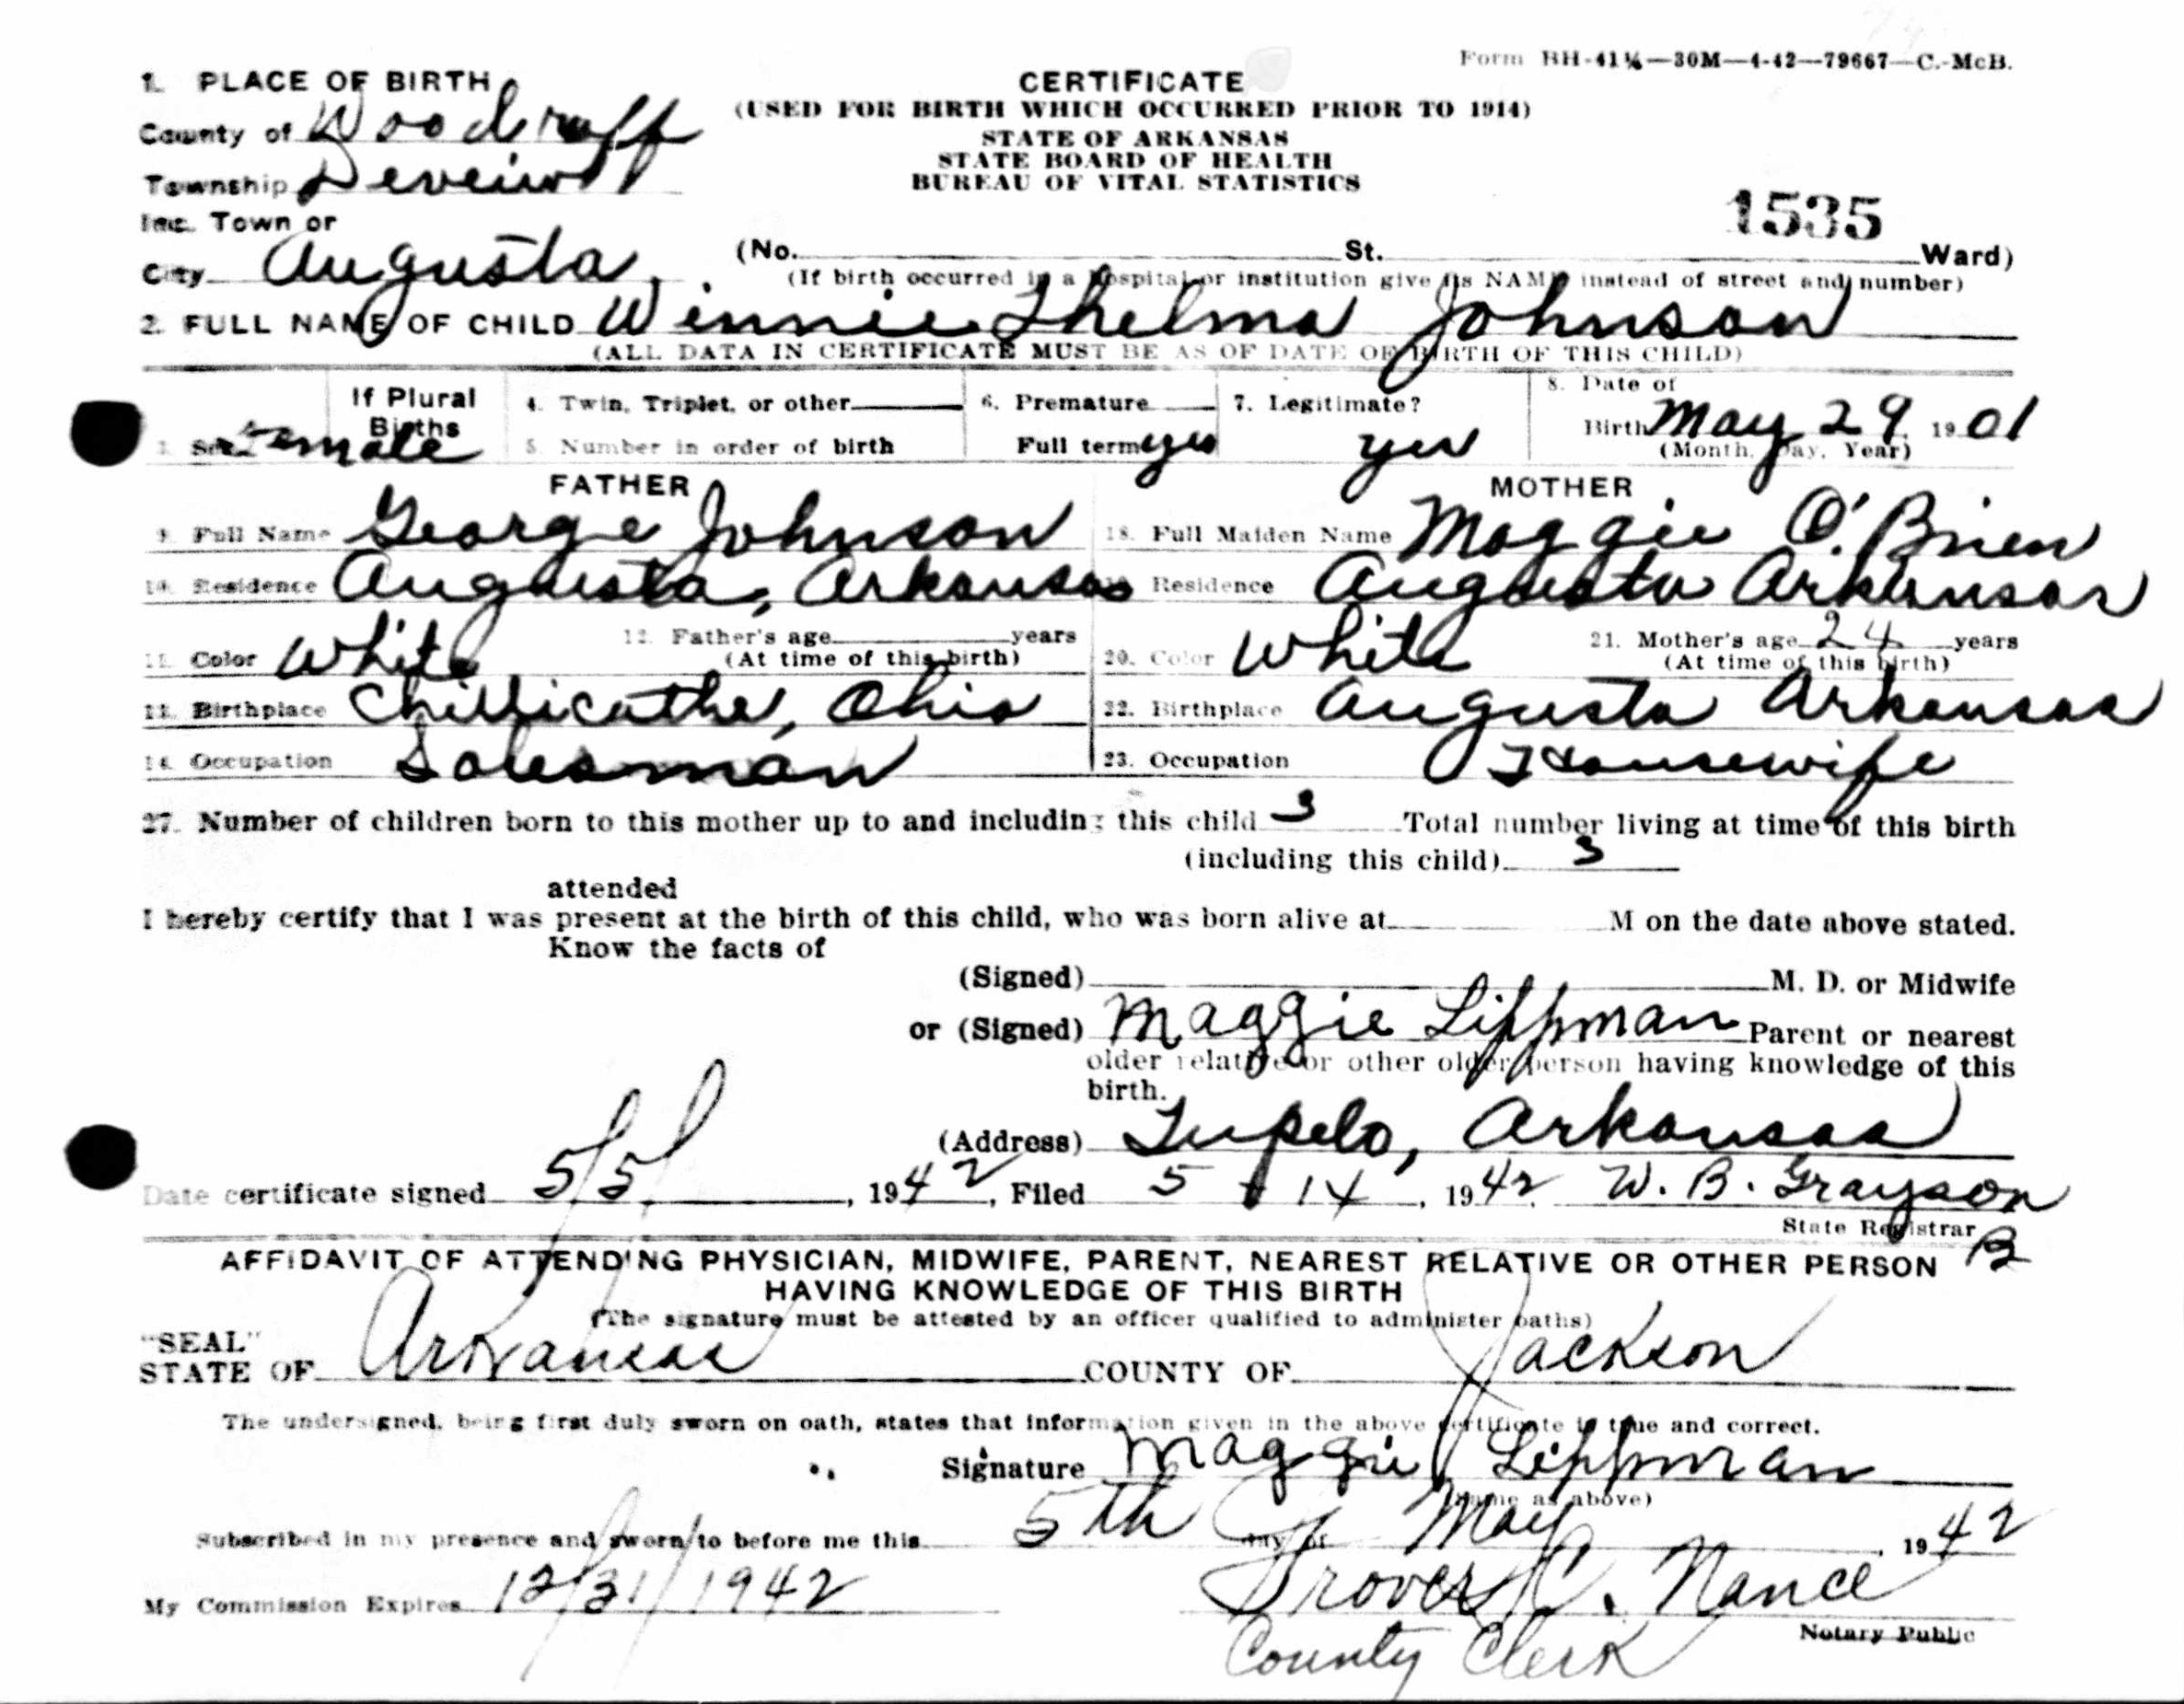 Form BH-41¼—30M—4-42—79667—C.-McB.
1. PLACE OF BIRTH
County of Woodruff
Township
Inc. Town or
City Augusta,
CERTIFICATE
(USED FOR BIRTH WHICH OCCURRED PRIOR TO 1914)
STATE OF ARKANSAS
STATE BOARD OF HEALTH
BUREAU OF VITAL STATISTICS
1535
(No. St. Ward)
(If birth occurred in a hospital or institution give its NAME instead of street and number)
2. FULL NAME OF CHILD Winnie Thelma Johnson
(ALL DATA IN CERTIFICATE MUST BE AS OF DATE OF BIRTH OF THIS CHILD)
3. Sex Female
If Plural Births
4. Twin, Triplet, or other
5. Number in order of birth
6. Premature
Full term yes
7. Legitimate?
yes
8. Date of
Birth May 29, 1901
(Month, Day, Year)
FATHER
9. Full Name George Johnson
10. Residence Augusta, Arkansas
11. Color White
12. Father's age years
(At time of this birth)
13. Birthplace Chillicothe, Ohio
14. Occupation Salesman
MOTHER
18. Full Maiden Name Maggie O'Brien
19. Residence Augusta Arkansas
20. Color White
21. Mother's age 24 years
(At time of this birth)
22. Birthplace Augusta Arkansas
23. Occupation Housewife
27. Number of children born to this mother up to and including this child 3 Total number living at time of this birth
(including this child) 3
attended
I hereby certify that I was present at the birth of this child, who was born alive at M on the date above stated.
Know the facts of
(Signed) M. D. or Midwife
or (Signed) Maggie Lippman Parent or nearest
older relative or other older person having knowledge of this
birth.
(Address) Tupelo, Arkansas
Date certificate signed 5/5/, 1942, Filed 5 / 14, 1942. W. B. Grayson
State Registrar
B
AFFIDAVIT OF ATTENDING PHYSICIAN, MIDWIFE, PARENT, NEAREST RELATIVE OR OTHER PERSON
HAVING KNOWLEDGE OF THIS BIRTH
(The signature must be attested by an officer qualified to administer oaths)
"SEAL"
STATE OF Arkansas COUNTY OF Jackson
The undersigned, being first duly sworn on oath, states that information given in the above certificate is true and correct.
Signature Maggie Lippman
(Name as above)
Subscribed in my presence and sworn to before me this 5th day of May, 1942
My Commission Expires 12/31/1942
Grover C. Nance
Notary Public
County Clerk